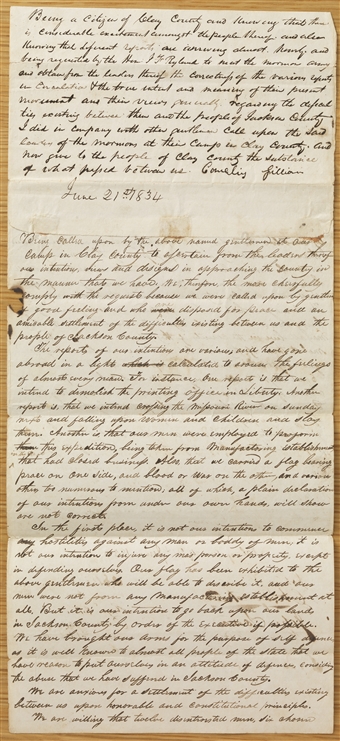 Being a citizen of Clay County and knowing that there
is considerable excitement amongst the people thereof and also
knowing that different reports are arriving almost hourly and
being requested by the Hon. J F Ryland to meet the mormons army
and obtain from the leaders thereof the correctness of the various reports
in circulation & the true intent and meaning of their present
movement and their views generally regarding the difficul
ties existing between them and the people of Jackson County
I did in company with other gentlemen call upon the said
leaders of the mormons at their camp in Clay County and
now give to the people of Clay County the substance
of what passed between us Cornelius Gillium
June 21st 1834
Being called upon by the above named gentlemen at our
Camp in Clay County to ascertain from the leaders there of
our intentions, views and designs in approaching the county in
the manner that we have, we, therefore the more cheerfully
comply with the request because we were called upon by gentlemen
of good feeling and who were disposed for peace and an
amicable settlement of the difficulties existing between us and the
people of Jackson County.
The reports of our intentions are various, and have gone
abroad in a light calculated to arouse the feelings
of almost every man. For instance One report is that we
intend to demolish the printing office in Liberty. Another
report is, that we intend crossing the Missouri River on Sunday
next and falling upon Women and Children and slay
them. Another is that our men were employed to perform
this expedition being taken from Manufacturing establishments
that had closed business. Also that we carried a flag bearing
peace on one side, and blood or War on the other, and various
others too numerous to mention, all of which, a plain declaration
of our intentions from under our own hands, will show
are not correct.
In the first place, it is not our intention to commence
any hostilities against any man or boddy of men, it is
not our intention to injure any mans person or property except
in defending ourselves. Our flag has been exhibited to the
above gentlemen who will be able to describe it, and our
men were not from any Manufacturing establishment at
all. But it is our intention to go back upon our lands
in Jackson County by order of the executive if possible.
We have brought our arms for the purpose of self defence,
as it is well known to almost all people of the state that we
have reason to put ourselves in an attitude of defence, considering
the abuse that we have suffered in Jackson County.
We are anxious for a settlement of the difficulties existing
between us upon honorable and constitutional principles.
We are willing that twelve disinterested men, six chosen